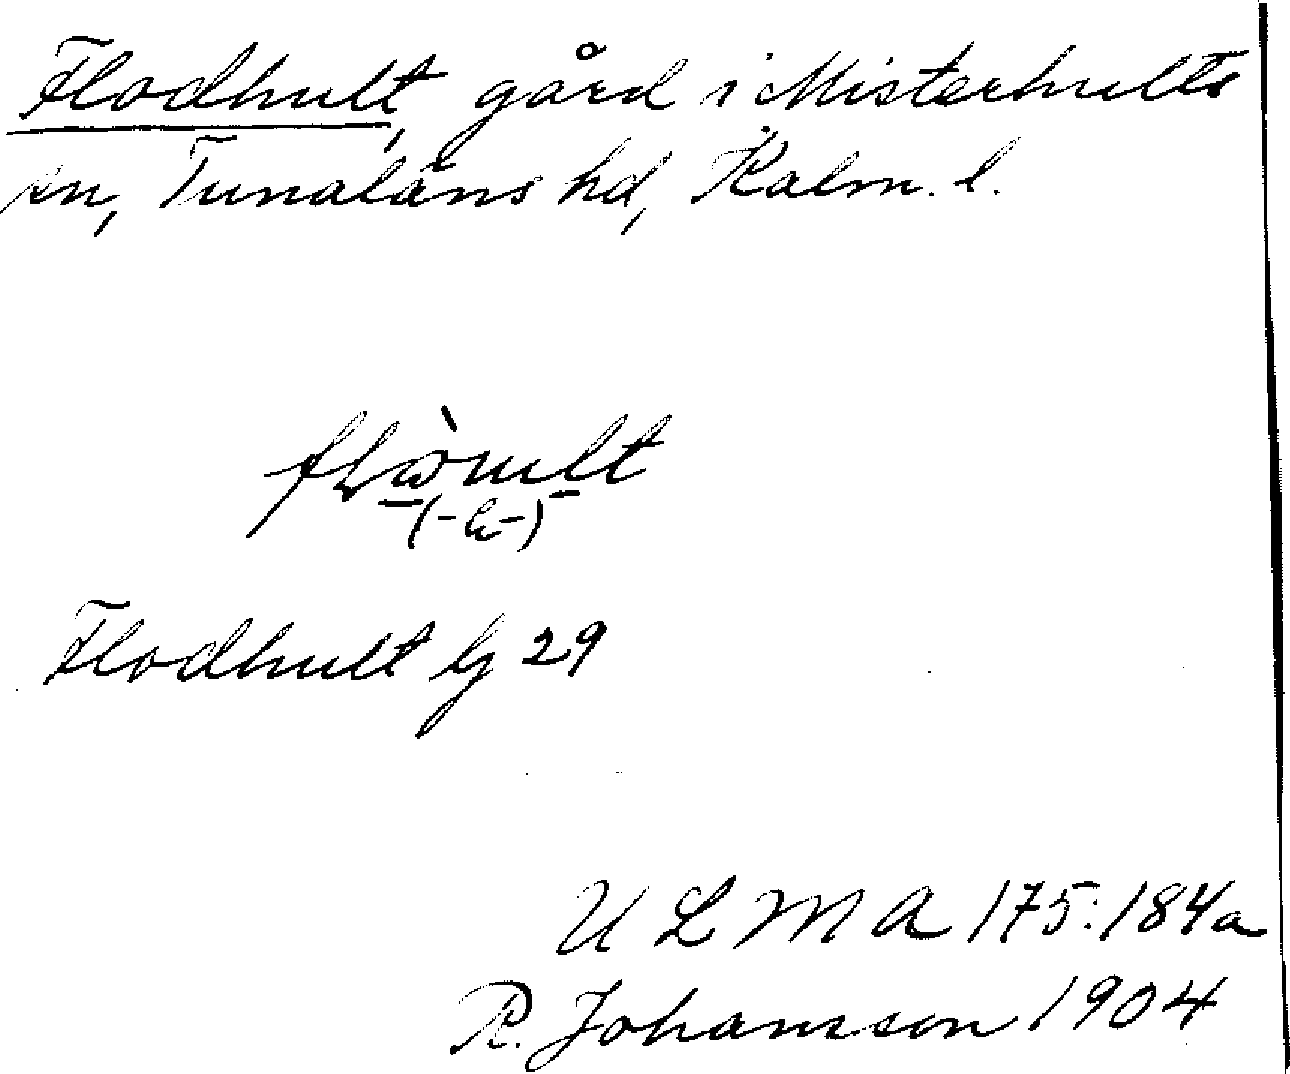 Flodhult, gård i Misterhults
sn, Tunaläns hd, Kalm. l.
(-h-)
Flodhult Gj 29
ULMA 175:184a
R. Johansson 1904